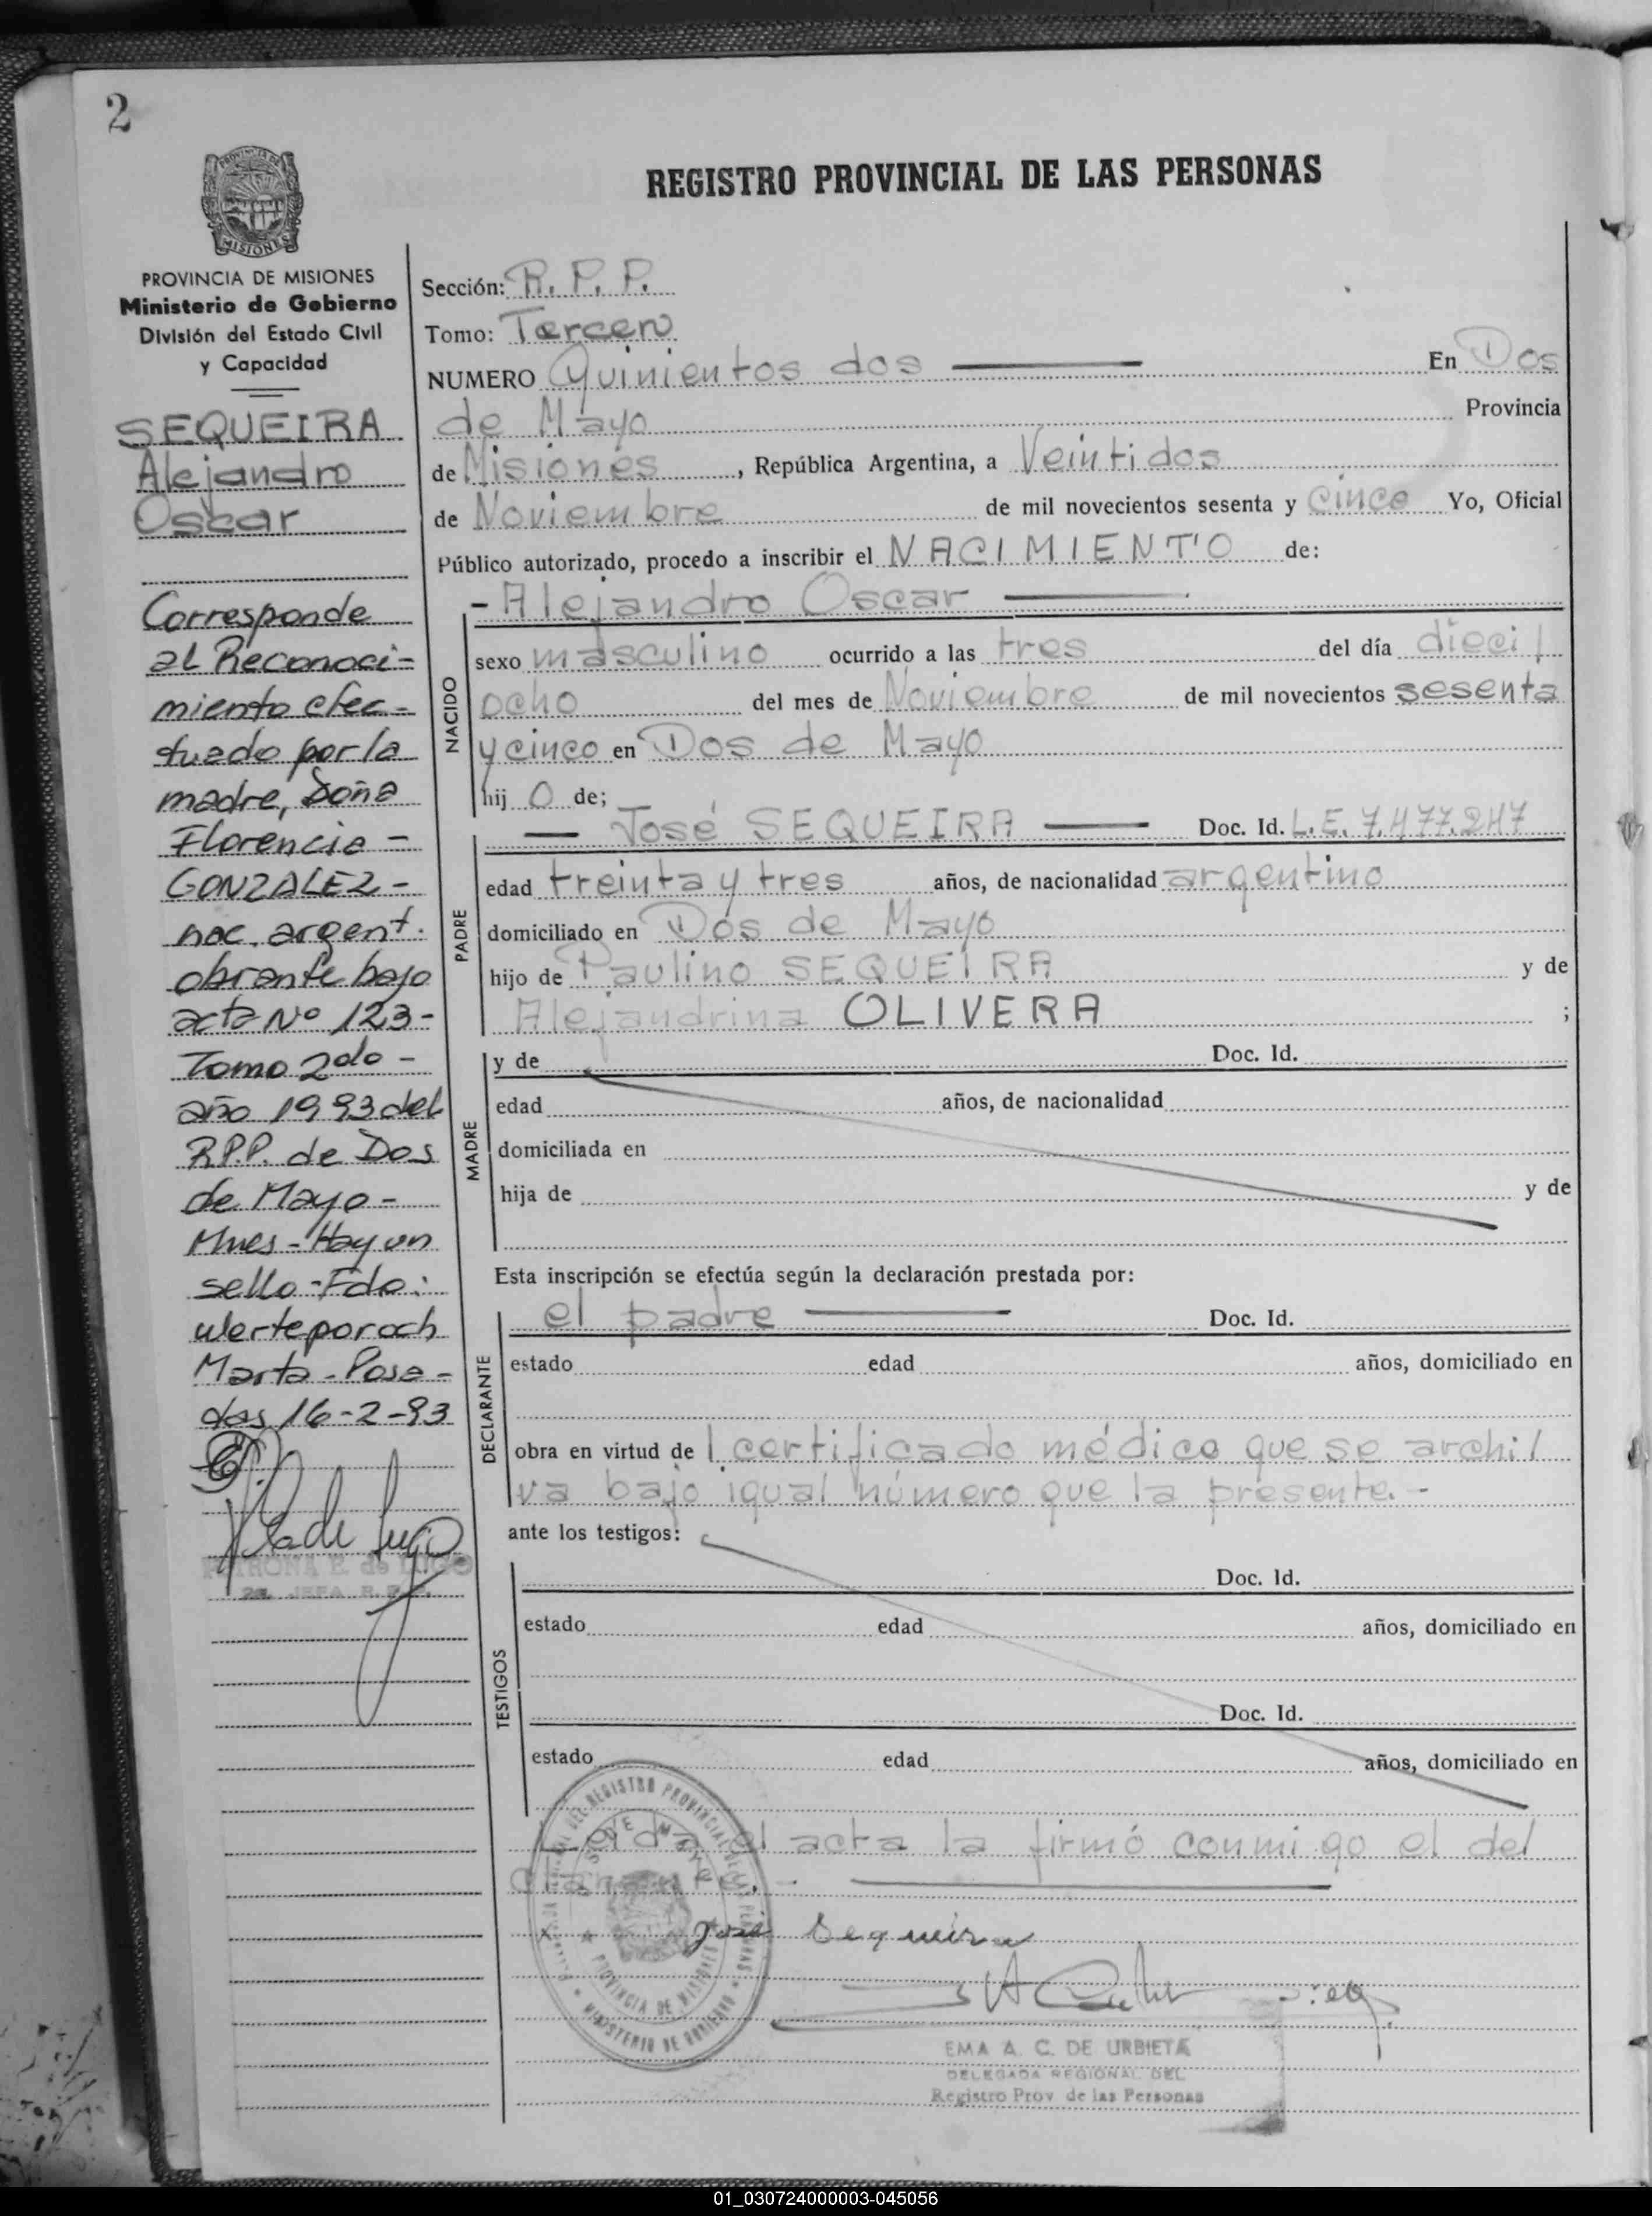 2
REGISTRO PROVINCIAL DE LAS PERSONAS
PROVINCIA DE
MISIONES
PROVINCIA DE MISIONES
Ministerio de Gobierno
División del Estado Civil
y Capacidad
SEQUEIRA
Alejandro
Oscar
Corresponde
al Reconoci-
miento efec-
tuado por la
madre, Doña
Florencia -
GONZALEZ -
nac. argent.
obrante bajo
acta Nº 123 -
Tomo 2do -
año 1993 del
R.P.P. de Dos
de Mayo -
Mnes - Hay un
sello - Fdo:
Marta - Posa-
das 16-2-93
PETRONA E. de LUGO
2a. JEFA R. P. P.
Sección: R. P. P.
Tomo: Tercero
NUMERO Quinientos dos En Dos
de Mayo Provincia
de Misiones, República Argentina, a Veintidos
de Noviembre de mil novecientos sesenta y cinco Yo, Oficial
Público autorizado, procedo a inscribir el NACIMIENTO de:
NACIDO
- Alejandro Oscar
sexo masculino ocurrido a las tres del día dieci
ocho del mes de Noviembre de mil novecientos sesenta
y cinco en Dos de Mayo
hij o de;
PADRE
José SEQUEIRA Doc. Id. L.E. 7.477.247
edad treinta y tres años, de nacionalidad argentino
domiciliado en Dos de Mayo
hijo de Paulino SEQUEIRA y de
Alejandrina OLIVERA ;
MADRE
y de Doc. Id.
edad años, de nacionalidad
domiciliada en
hija de y de
Esta inscripción se efectúa según la declaración prestada por:
DECLARANTE
el padre Doc. Id.
estado edad años, domiciliado en
obra en virtud de l certificado médico que se archi
va bajo igual número que la presente. -
ante los testigos:
TESTIGOS
Doc. Id.
estado edad años, domiciliado en
Doc. Id.
estado edad años, domiciliado en
Leida el acta la firmó conmigo el de
clarante. -
x José Sequeira
DEL REGISTRO PROVINCIAL DE LAS PERSONAS
MINISTERIO DE GOBIERNO
PROVINCIA DE MISIONES
EMA A. C. DE URBIETA
DELEGADA REGIONAL DEL
Registro Prov. de las Personas
01_030724000003-045056